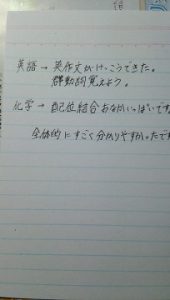 英語→英作文がけっこうできた。
群動詞覚えよう。
化学→配位結合おなかいっぱいです
全体的にすごく分かりやすかったです